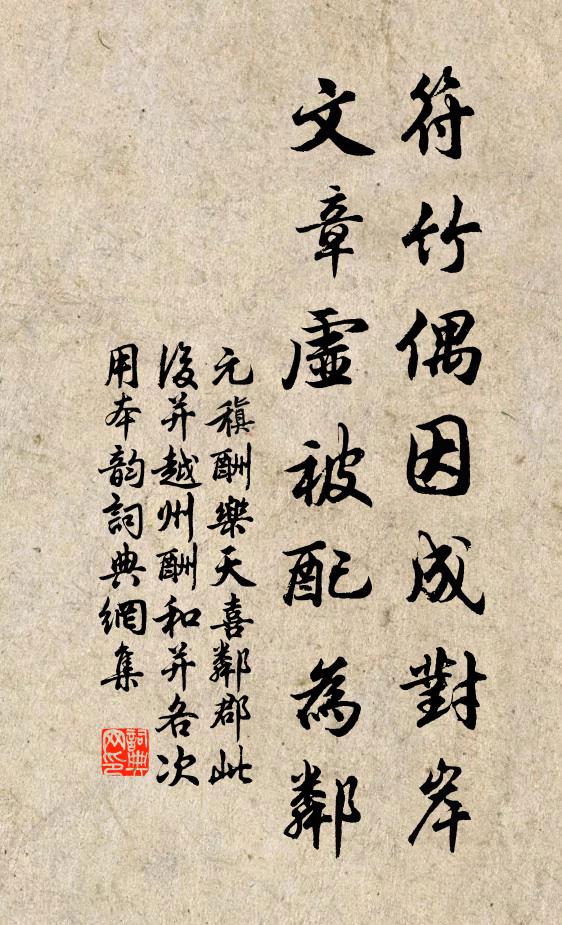 符竹偶因成對岸
文章虛被配為鄰
元稹酬樂天喜鄰郡此
後并越州酬和并各次
用本韵詞典網集
詞典
网印